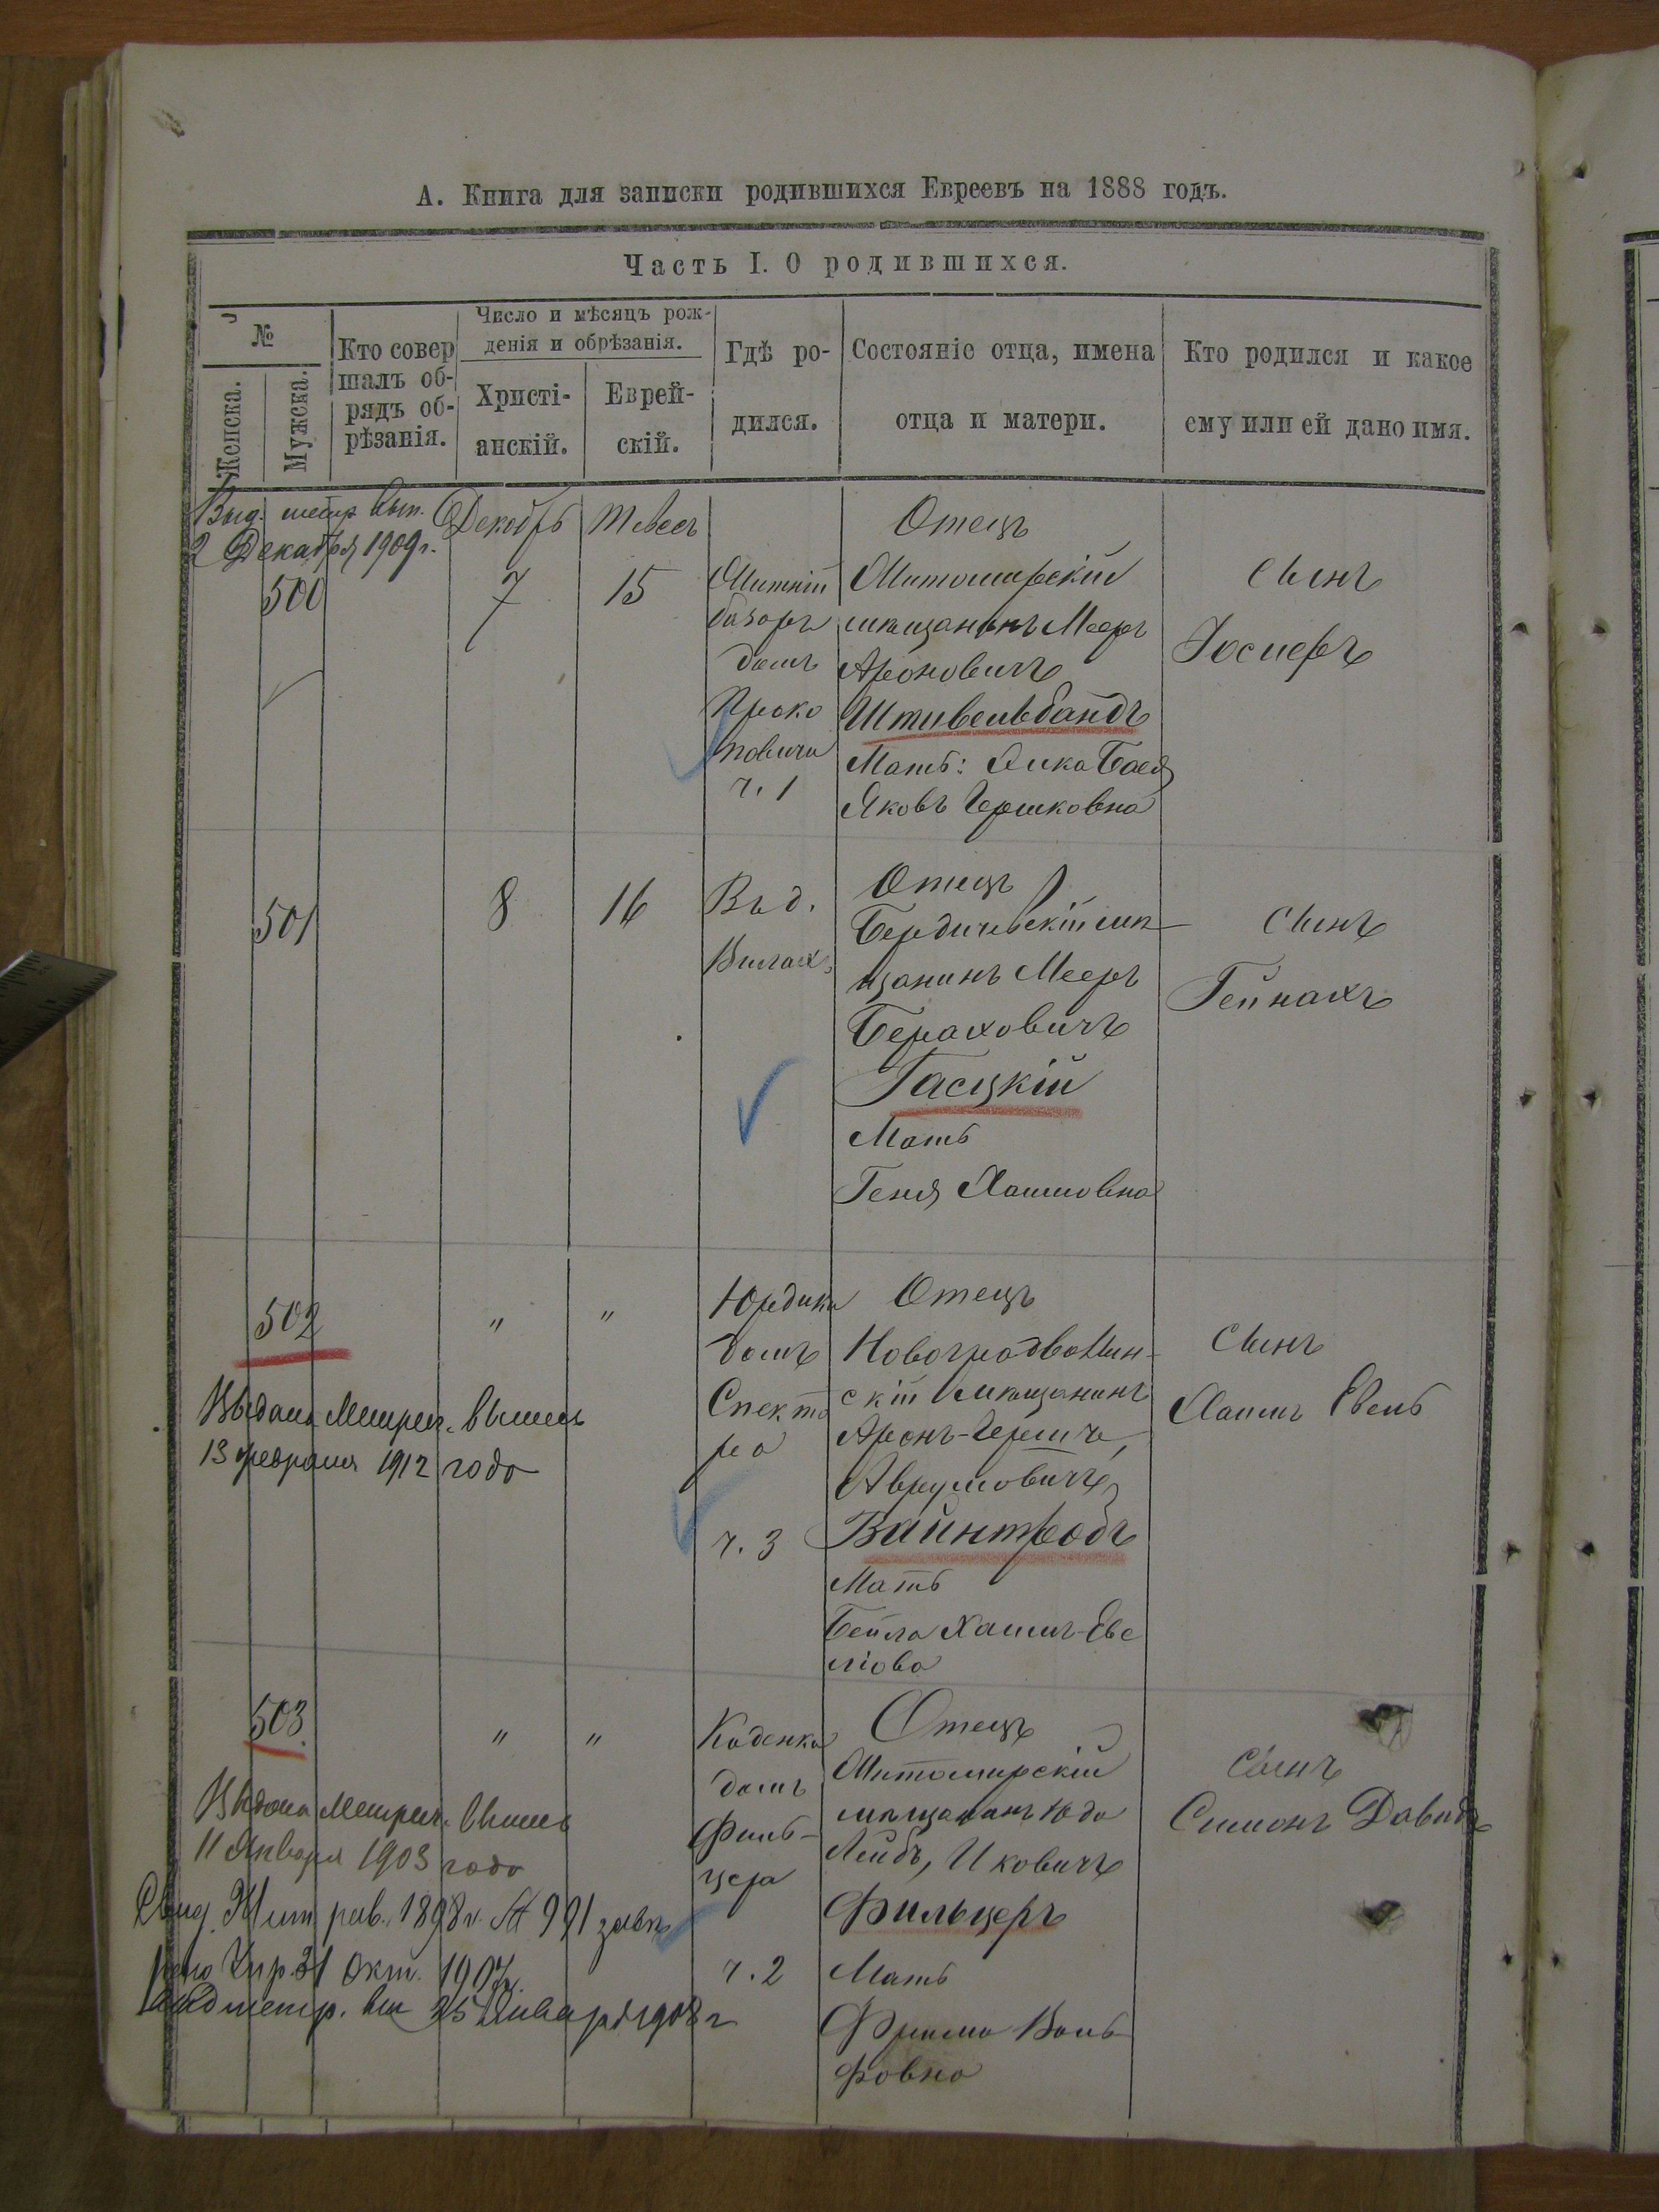 А. Книга для записки родившихся Евреевъ на 1888 годъ.
Часть I. О родившихся.
№
Женска.
Мужска.
Кто совер
шалъ об-
рядъ об-
рѣзанія.
Число и мѣсяцъ рож-
денія и обрѣзанія.
Христі-
анскій.
Еврей-
скій.
Гдѣ ро-
дился.
Состояніе отца, имена
отца и матери.
Кто родился и какое
ему или ей дано имя.
Выд. метр. вып.
2 Декабря 1909 г.
500
Декабрь
7
Тевесъ
15
Житній
базаръ
домъ
Проко
повича
ч. 1
Отецъ
Житомирскій
мѣщанинъ Мееръ
Ароновичъ
Штивельбандъ
Мать:
Яковъ Гершковна
Сынъ
Іосифъ
501
8
16
Въ д.
Отецъ
Бердичевскій мѣ-
щанинъ Мееръ
Бераховичъ
Гасцкій
Мать
Геня Хаимовна
Сынъ
Гейнахъ
502
"
"
Выдана Метрич. выпись
13 февраля 1912 года
Юридика
домъ
Спекто
ра
ч. 3
Отецъ
Новоградволын-
скій мѣщанинъ
Аронъ-Гершъ,
Аврумовичъ
Вайнтробъ
Мать
Бейла Хаимъ-Еве
ліова
Сынъ
Хаимъ Евель
503.
"
"
Выдана Метрич. выпись
11 Января 1903 года
Свид. Жит рав. 1898 г. № 991 завѣ
рено Упр. 31 Окт. 1907 г.
Выд метр. вы 25 Января 1908 г
Каденка
домъ
Филь-
цера
ч. 2
Отецъ
Житомирскій
мѣщанинъ Юда
Лейбъ, Ицковичъ
Фильцеръ
Мать
Фрима Воль
фовна
Сынъ
Симонъ Давидъ